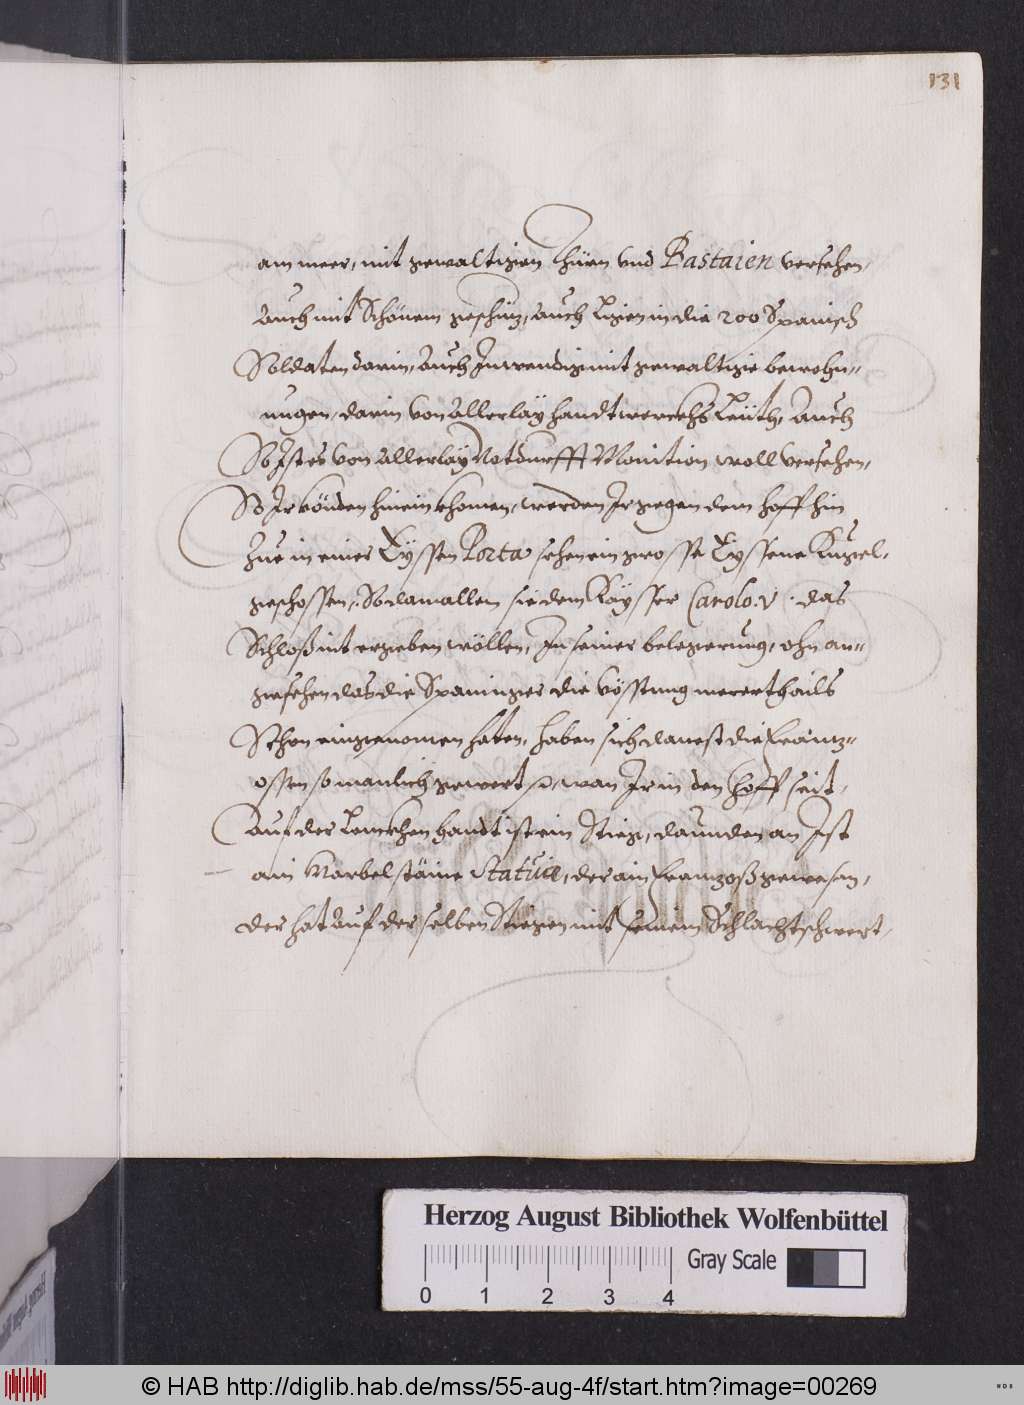 131
am meer, mit gewaltigen Thürn vnd Pastaien versehen,
Auch mit Schönem geschüz, Auch ligen in die 200 Spanisch
Soldaten darin, Auch Inwendig mit gewaltige bewohn¬
nungen, darin von Allerlay handtwerckhs Leüth, Auch
So Ist es von Allerlay Notdurfft Monition woll versehen,
So Ir könden hinein khomen, werden Ir gegen dem hoff hin
Zue in einer Eyssen Porta sehen ein grosse Eyssene Kugel,
geschossen, So damallen sie dem Kaysser Carolo. V. das
Schloß nit ergeben wöllen, In seiner belegerung, ohn an¬
gesehen das die Spaninger die Vösstung merer thails
Schon eingenomen haten, haben sich danest die Franz¬
ossen so manlich gewert wan Ir in den hoff seit,
Auf der Lenckhen handt ist ein Stieg, daunden an Ist
ain Marbelstaine Statua, der ain Franzoß gewesen,
der hat Auf der selben Stiegen mit seinem Schlachtschwert,
Herzog August Bibliothek Wolfenbüttel
Gray Scale
0 1 2 3 4
© HAB http://diglib.hab.de/mss/55-aug-4f/start.htm?image=00269